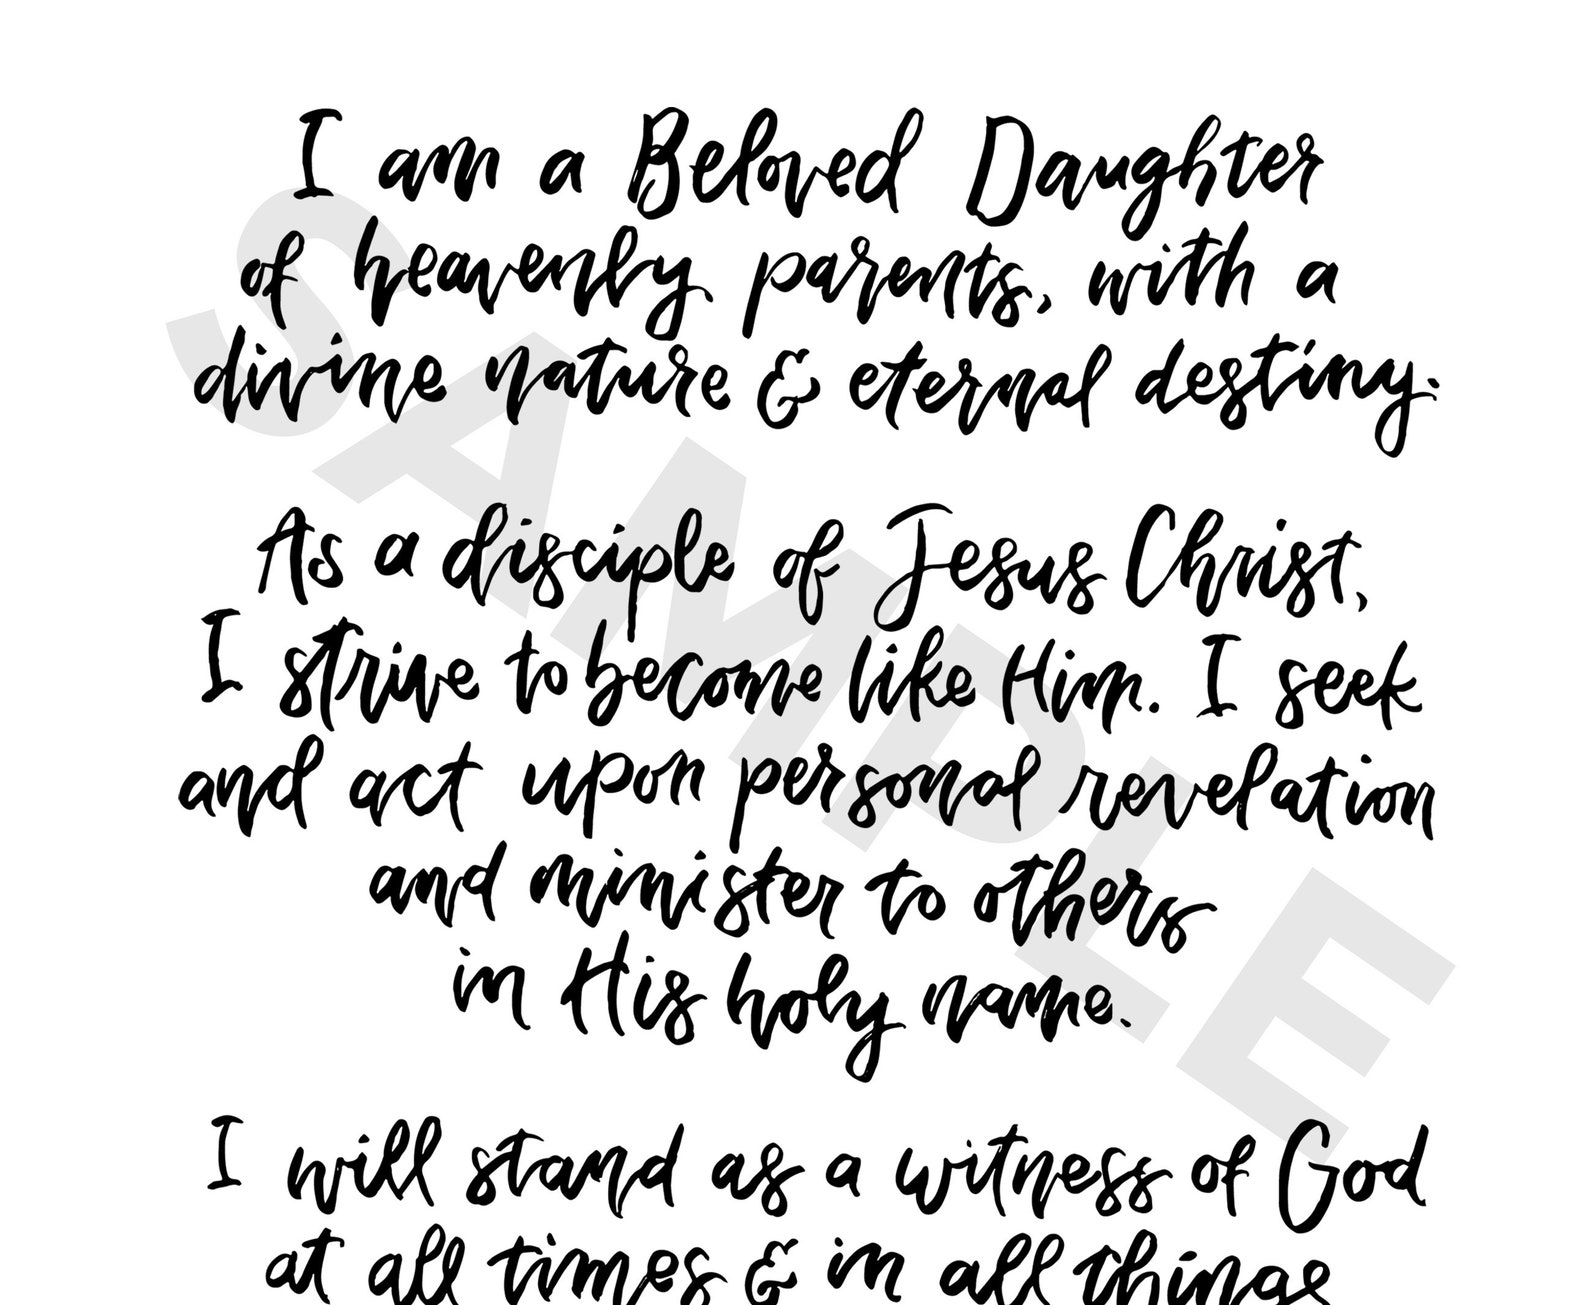 I am a Beloved Daughter
of heavenly parents, with a
divine nature & eternal destiny.
As a disciple of Jesus Christ,
I strive to become like Him. I seek
and act upon personal revelation
and minister to others
in His holy name.
I will stand as a witness of God
at all times & in all things
SAMPLE